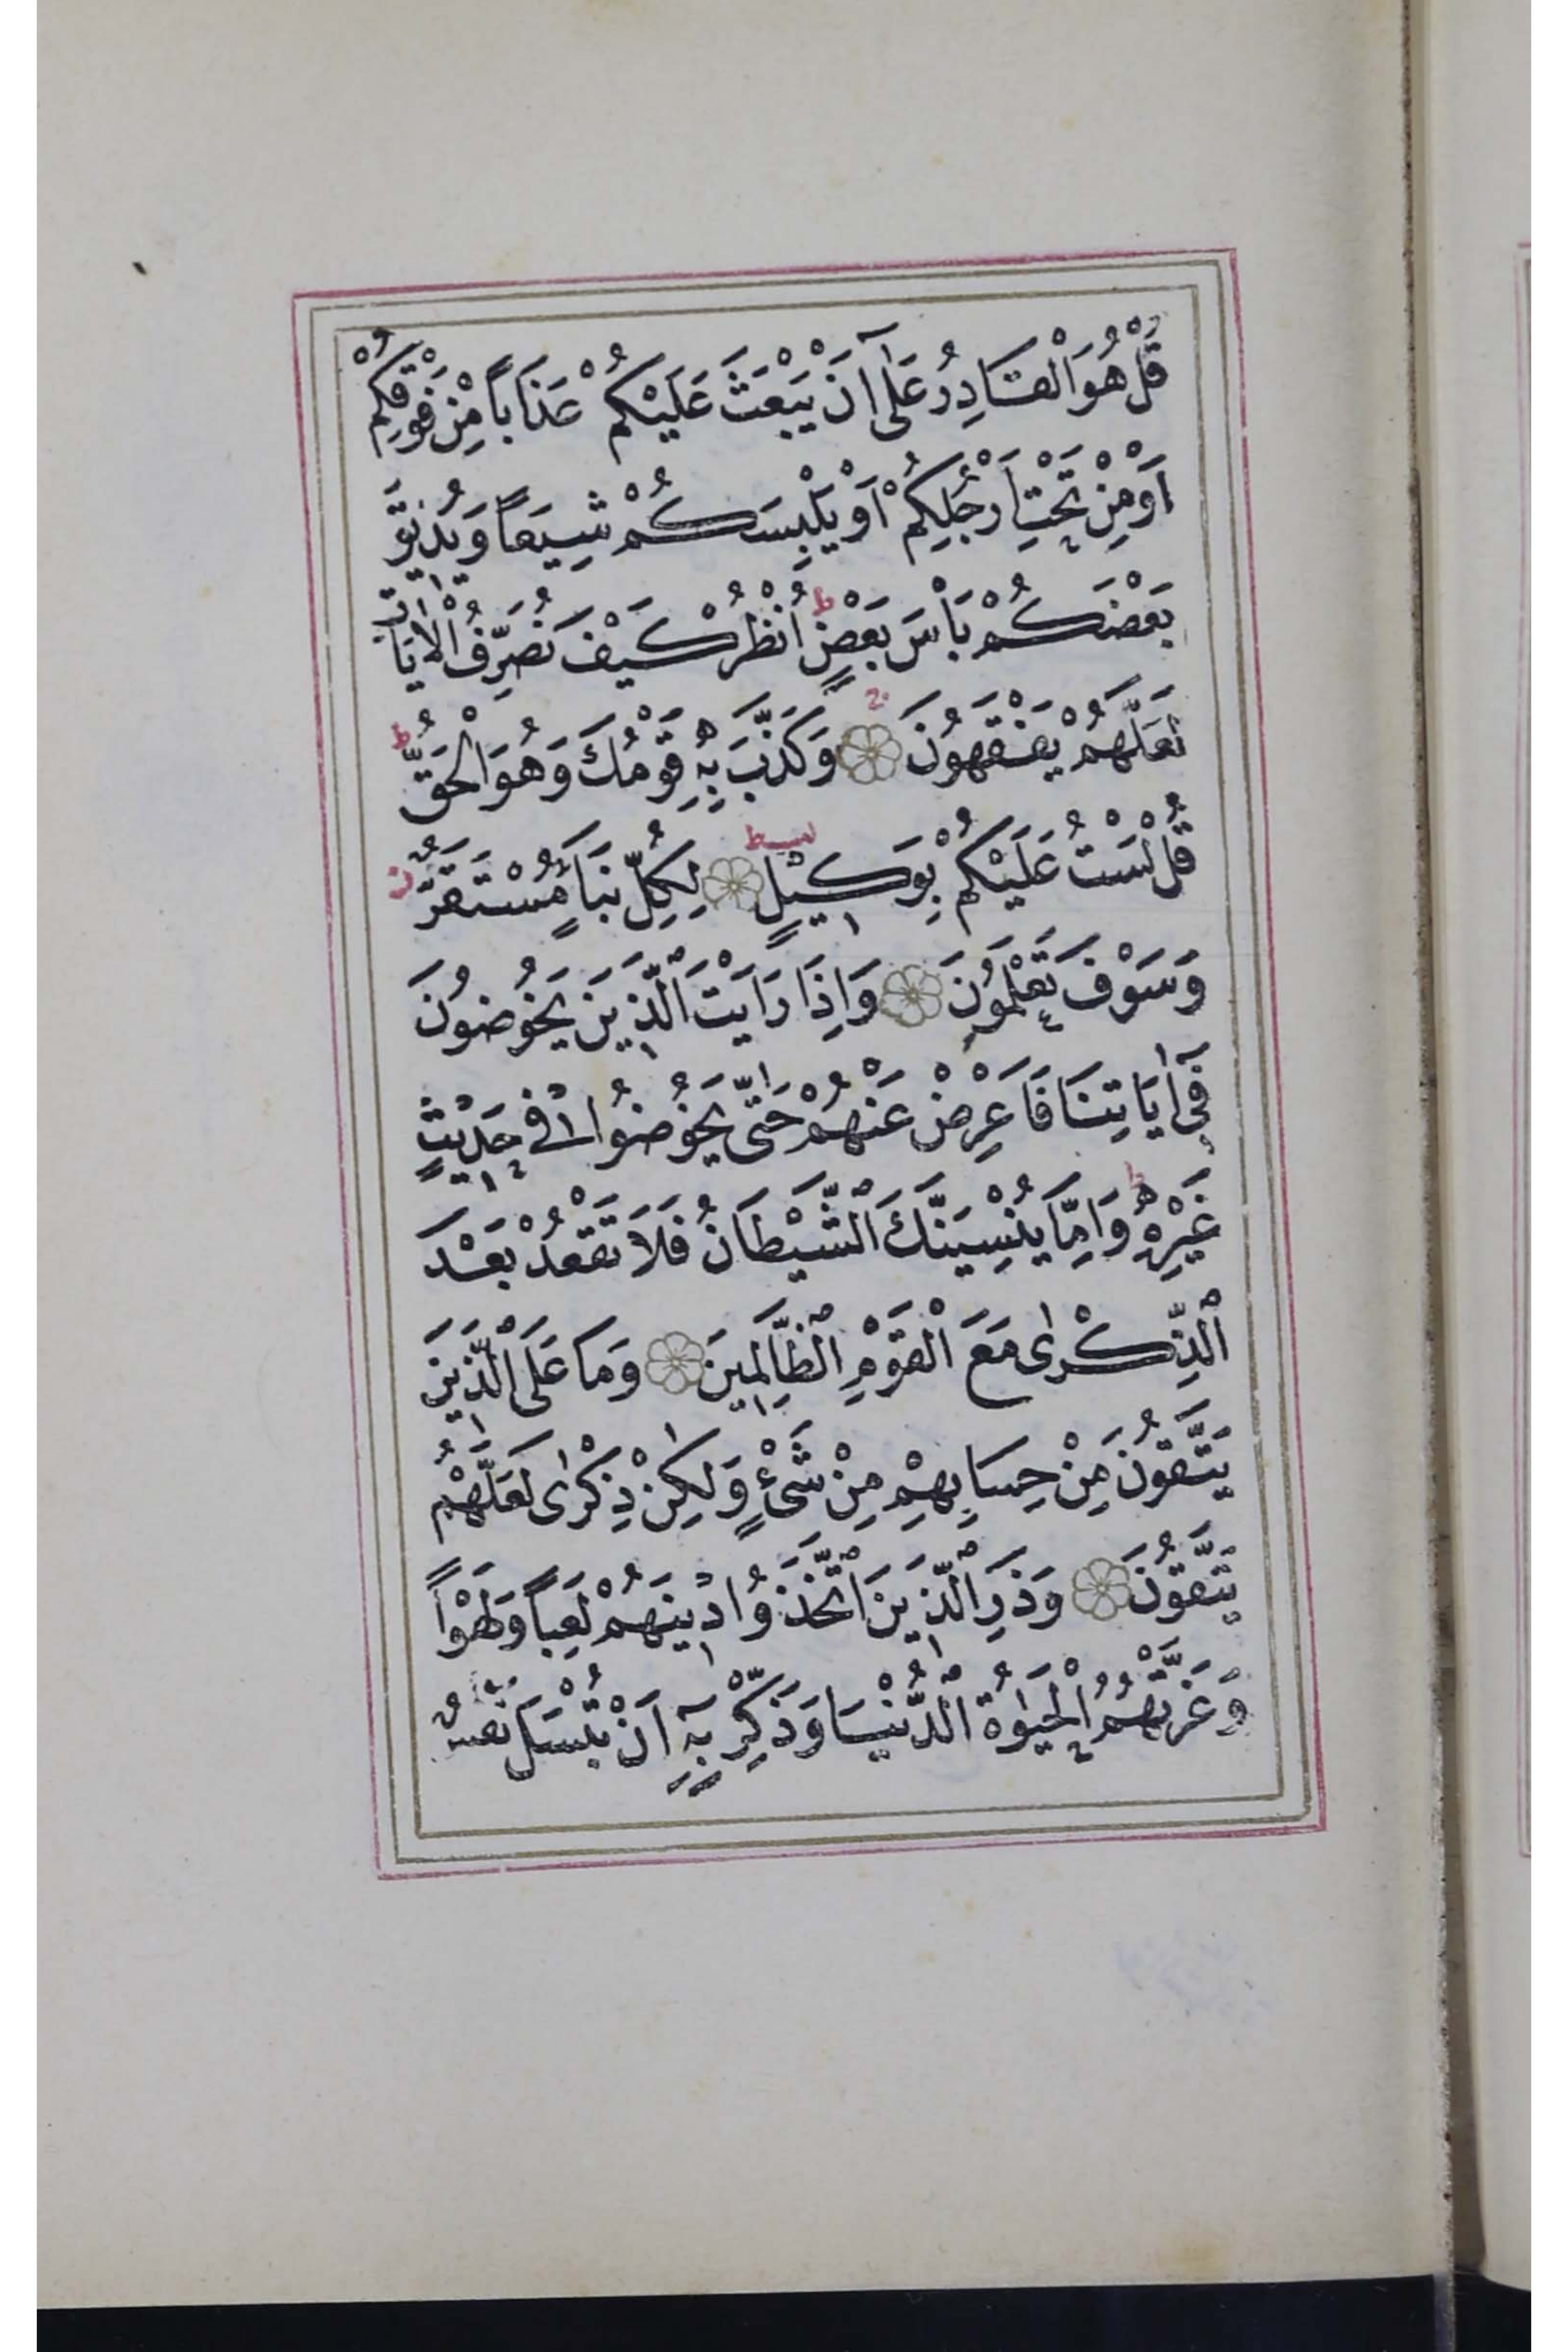 قُلْ هُوَ الْقَادِرُ عَلٰٓى اَنْ يَبْعَثَ عَلَيْكُمْ عَذَاباً مِنْ فَوْقِكُمْ
اَوْ مِنْ تَحْتِ اَرْجُلِكُمْ اَوْ يَلْبِسَكُمْ شِيَعاً وَيُذِيقَ
بَعْضَكُمْ بَاْسَ بَعْضٍ ط اُنْظُرْ كَيْفَ نُصَرِّفُ الْاٰيَاتِ
لَعَلَّهُمْ يَفْقَهُونَ وَكَذَّبَ بِهِ قَوْمُكَ وَهُوَ الْحَقُّ ط
قُلْ لَسْتُ عَلَيْكُمْ بِوَكِيلٍ ط لِكُلِّ نَبَأٍ مُسْتَقَرٌّ ز
وَسَوْفَ تَعْلَمُونَ وَاِذَا رَاَيْتَ الَّذِينَ يَخُوضُونَ
فِٓى اٰيَاتِنَا فَاَعْرِضْ عَنْهُمْ حَتّٰى يَخُوضُوا فِى حَدِيثٍ
غَيْرِهِ ط وَاِمَّا يُنْسِيَنَّكَ الشَّيْطَانُ فَلَا تَقْعُدْ بَعْدَ
الذِّكْرٰى مَعَ الْقَوْمِ الظَّالِمِينَ وَمَا عَلَى الَّذِينَ
يَتَّقُونَ مِنْ حِسَابِهِمْ مِنْ شَىْءٍ وَلٰكِنْ ذِكْرٰى لَعَلَّهُمْ
يَتَّقُونَ وَذَرِ الَّذِينَ اتَّخَذُوا دِينَهُمْ لَعِباً وَلَهْواً
وَغَرَّتْهُمُ الْحَيٰوةُ الدُّنْيَا وَذَكِّرْ بِهِٓ اَنْ تُبْسَلَ نَفْسٌ